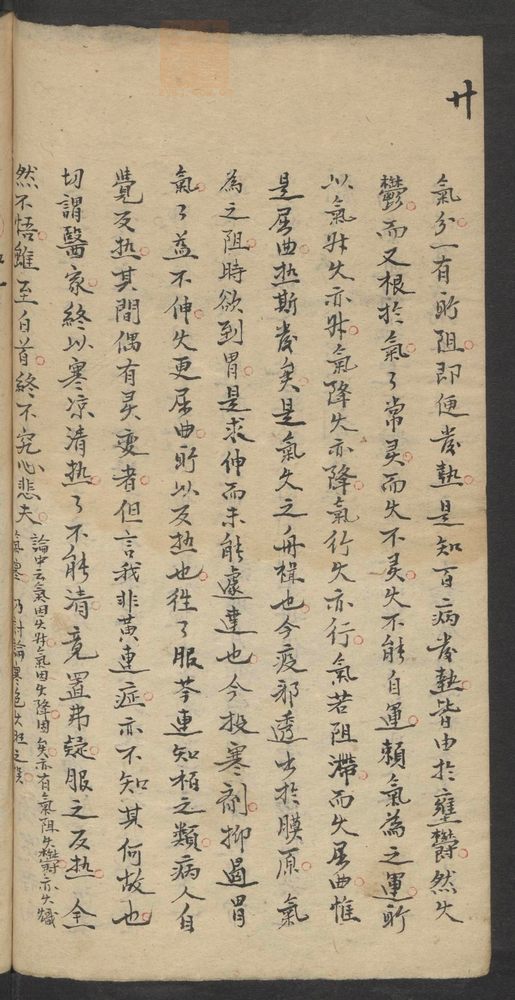 廿
氣分一有所阻即便發熱是知百病發熱皆由於壅欝然火
欝而又根於氣々常灵而火不灵火不能自運賴氣為之運所
以氣升火亦升氣降火亦降氣行火亦行氣若阻滯而火屈曲惟
是屈曲热斯發矣是氣火之舟楫也今疫邪透出於膜原氣
為之阻時欲到胃是求伸而未能遽達也今投寒劑抑遏胃
氣々益不伸火更屈曲所以反热也徃々服芩連知栢之類病人自
覺反热其間偶有灵变者但言我非黃連症亦不知其何故也
切謂醫家終以寒凉清热々不能清竟置弗疑服之反热全
然不悟雖至白首終不究心悲夫
論中云氣因火升氣因火降因矣亦有氣阻火欝亦火熾